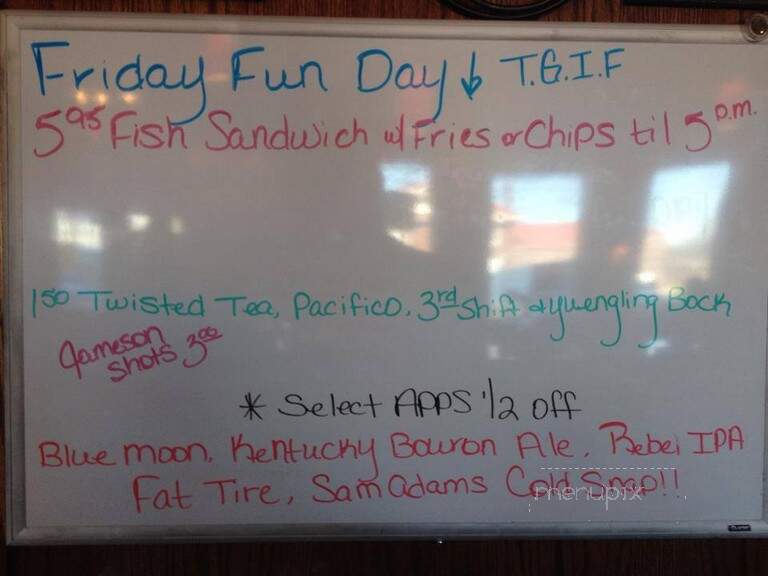 Friday Fun Day ↓ T.G.I.F
5 95 Fish Sandwich w/ Fries or Chips til 5 p.m.
1 50 Twisted Tea, Pacifico, 3rd Shift & Yuengling Bock
Jameson
Shots 3 00
* Select APPS 1/2 off
Blue moon, Kentucky Bouron Ale, Rebel IPA
Fat Tire, Sam Adams Cold Snap!!
menupix